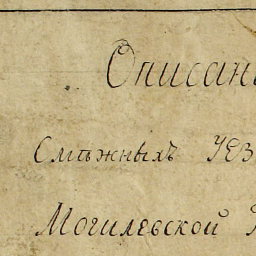 Описан
Смѣжныхъ УЕЗ
Могилевской